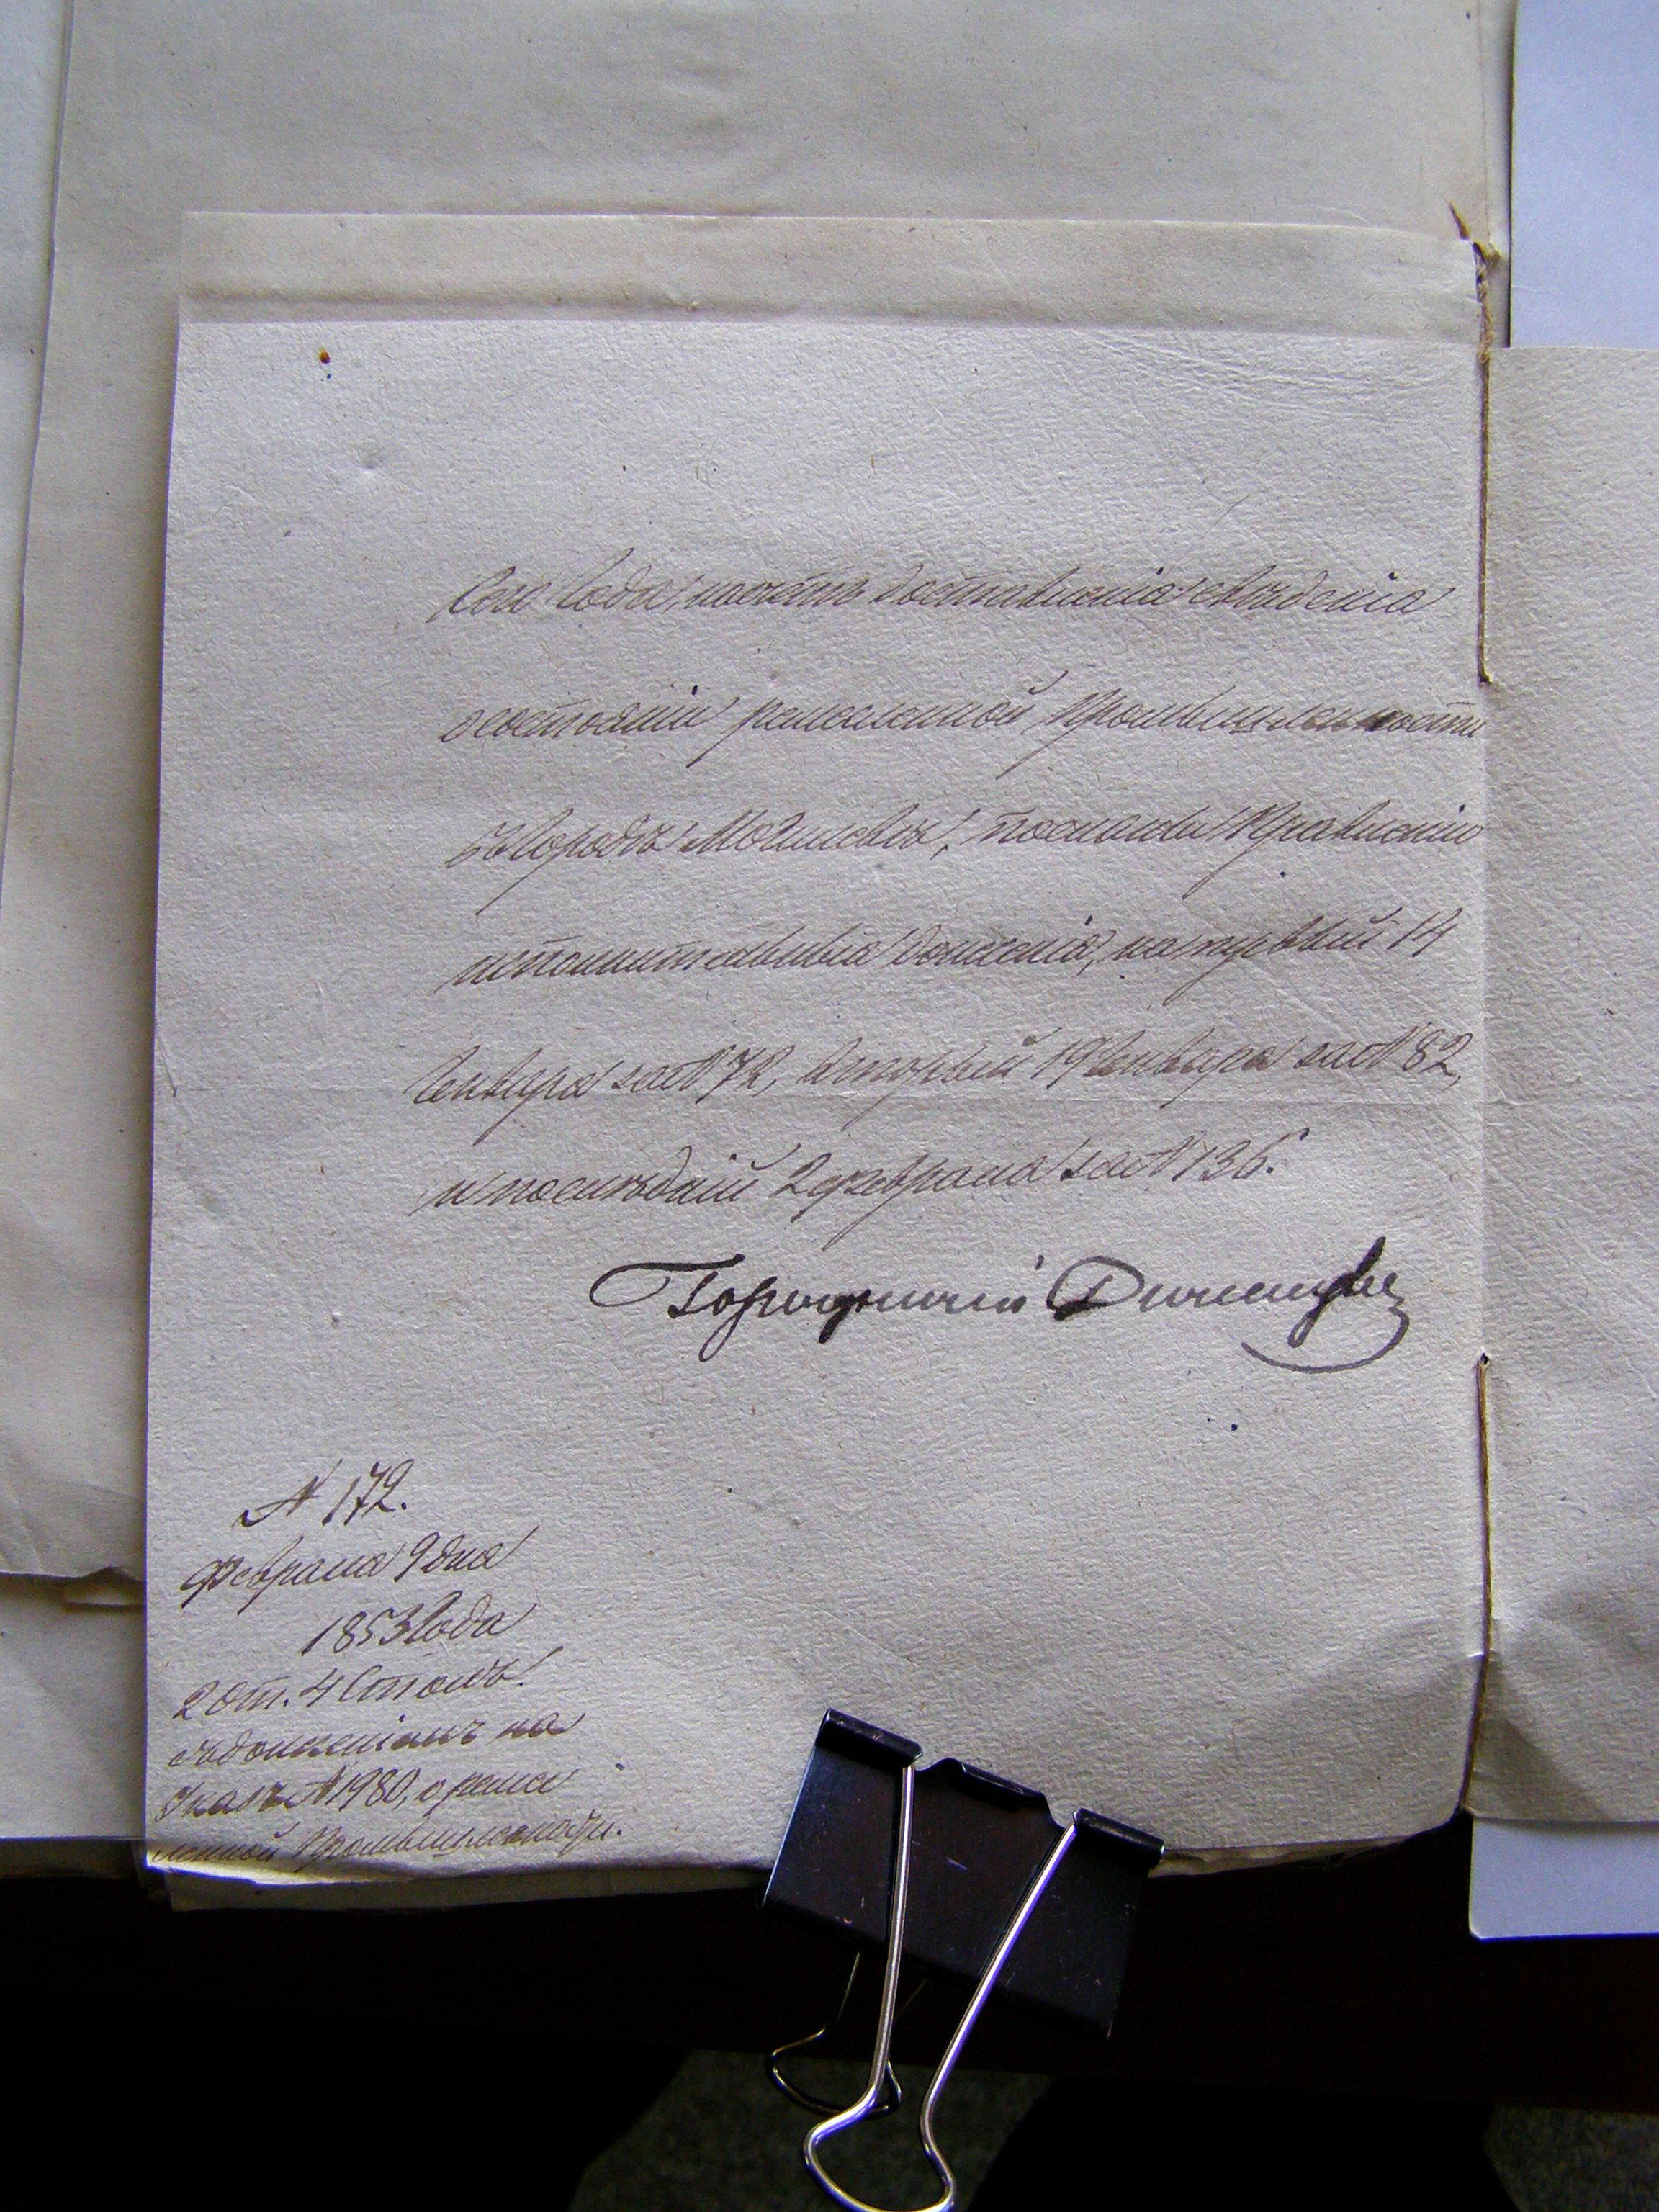 Сего Года, насчетъ доставленія сведенія
о состояніи ремесленной промышленности
въ Городѣ Могилевѣ, посланы Правленію
исполнительныя донесенія, на первый 14
Генваря за № 72, вторый 19 Генваря за № 82,
и последній 2 февраля за № 136.
Городничій
№ 172.
Февраля 9 дня
1853 Года
2 От. 4 Столъ.
съ донесеніемъ на
Указъ № 1980, о ремес
ленной Промышленности.